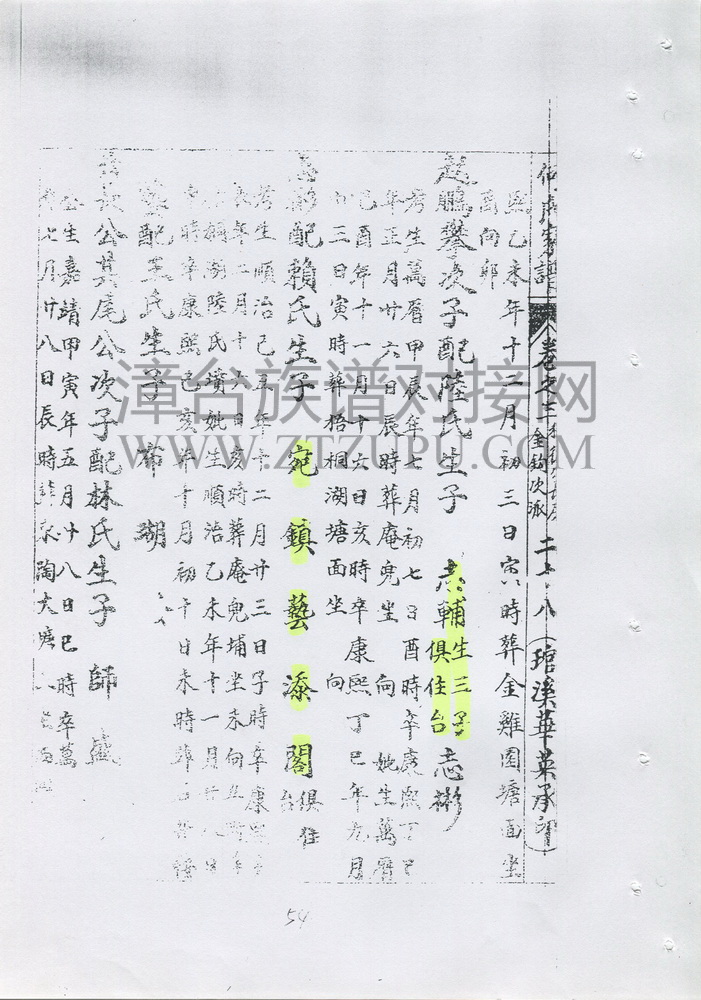 何氏家譜 卷之三 金鈎次派 二十八 (琯溪華英承印)
熙乙未年十二月初三日寅時葬金雞園塘面坐
酉向卯
鵬攀次子配陸氏生子 志輔生三子俱住台 志彬
考生萬曆甲辰年七月初七日酉時卒康熙丁巳
年正月廿六日辰時葬庵兜坐 向 妣生萬曆
己酉年十一月十六日亥時卒康熙丁巳年九月
初三日寅時葬梧桐湖塘面坐 向
志彬配賴氏生子 宛 鎮 藝 添 閣 俱住台
考生順治己丑年十二月廿三日子時卒康熙
年二月十六日亥時葬庵兜埔坐未向丑
湖陸氏墳妣生順治乙未年十一月廿八日
時卒康熙己亥年十月初十日未時葬
配王氏生子 帝 湖
公其尾公次子配林氏生子 師 盛
公生嘉靖甲寅年五月十八日巳時卒萬
年七月廿八日長時葬 陶大
54
漳台族谱对接网
WWW.ZTZUPU.COM